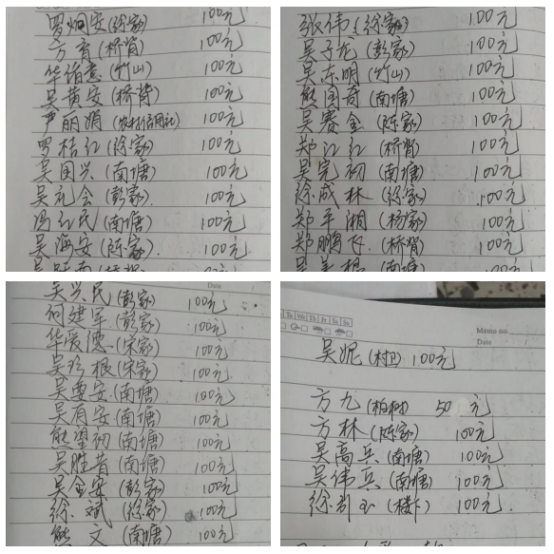 罗炯安(徐家) 100元
方青(桥背) 100元
华诸意(竹山) 100元
吴黄安(桥背) 100元
严丽娟(农村信用社) 100元
罗桔红(徐家) 100元
吴国兴(南塘) 100元
吴礼会(彭家) 100元
冯红民(南塘) 100元
吴海安(陈家) 100元
张伟(徐家) 100元
吴子龙(彭家) 100元
吴东明(竹山) 100元
熊国奇(南塘) 100元
吴赛金(陈家) 100元
郑江红(桥背) 100元
吴完初(南塘) 100元
徐成林(徐家) 100元
郑平湘(杨家) 100元
郑鹏飞(桥背) 100元
Date
吴兴民(彭家) 100元
何建军(彭家) 100元
华爱德(宋家) 100元
吴珍根(宋家) 100元
吴要安(南塘) 100元
吴有安(南塘) 100元
熊望初(南塘) 100元
吴胜昔(南塘) 100元
吴金安(彭家) 100元
徐斌(徐家) 100元
熊文(南塘) 100元
Memo no.
Date
吴妮(村卫) 100元
方九(柏树) 50元
方林(陈家) 100元
吴高兵(南塘) 100元
吴伟兵(南塘) 100元
徐(楼下) 100元